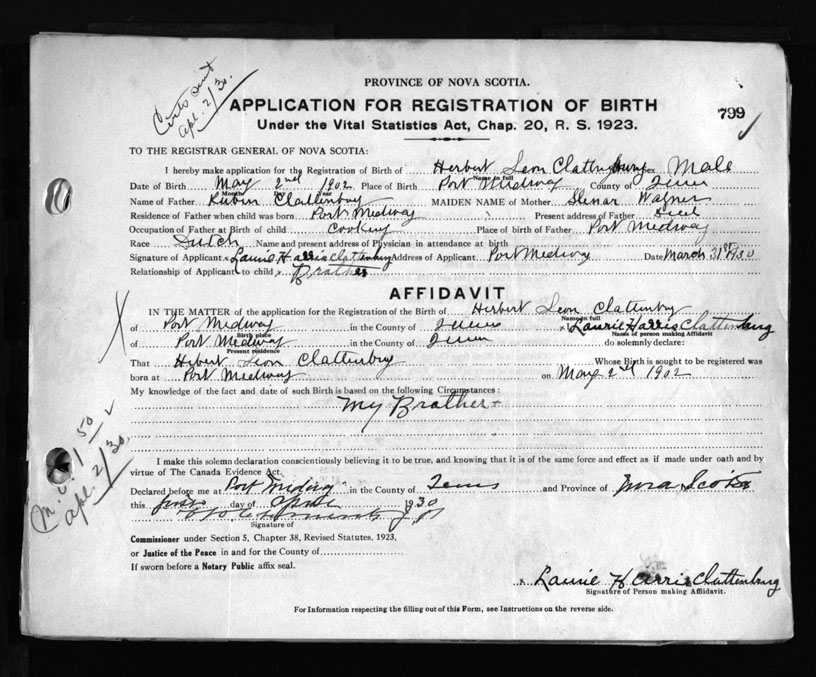 Certs sent
apl. 2/30.
PROVINCE OF NOVA SCOTIA.
APPLICATION FOR REGISTRATION OF BIRTH
799
Under the Vital Statistics Act, Chap. 20, R. S. 1923.
TO THE REGISTRAR GENERAL OF NOVA SCOTIA:
I hereby make application for the Registration of Birth of Herbert Leon Clattenburg Sex Male
Name in full
Date of Birth May 2nd 1902 Place of Birth Port Medway County of
Month Day Year
Name of Father Rubin Clattenburg MAIDEN NAME of Mother Wagner
Residence of Father when child was born Port Medway Present address of Father Died
Occupation of Father at Birth of child Place of birth of Father Port Medway
Race Dutch Name and present address of Physician in attendance at birth
Signature of Applicant x Laurie Harris Clattenburg Address of Applicant Port Medway Date March 31st 1930
Relationship of Applicant to child x Brother
AFFIDAVIT
IN THE MATTER of the application for the Registration of the Birth of Herbert Leon Clattenburg
Name in full
of Port Medway in the County of x Laurie Harris Clattenburg
Birth place Name of person making Affidavit
of Port Medway in the County of do solemnly declare:
Present residence
That Herbert Leon Clattenburg Whose Birth is sought to be registered was
born at Port Medway on May 2nd 1902
My knowledge of the fact and date of such Birth is based on the following Circumstances:
My Brather
I make this solemn declaration conscientiously believing it to be true, and knowing that it is of the same force and effect as if made under oath and by
virtue of The Canada Evidence Act.
Declared before me at Port Medway in the County of and Province of Nova Scotia
this day of 1930
Signature of
Commissioner under Section 5, Chapter 38, Revised Statutes, 1923,
or Justice of the Peace in and for the County of
If sworn before a Notary Public affix seal.
x Laurie Harris Clattenburg
Signature of Person making Affidavit.
For Information respecting the filling out of this Form, see Instructions on the reverse side.
1 50
apl. 2/30.